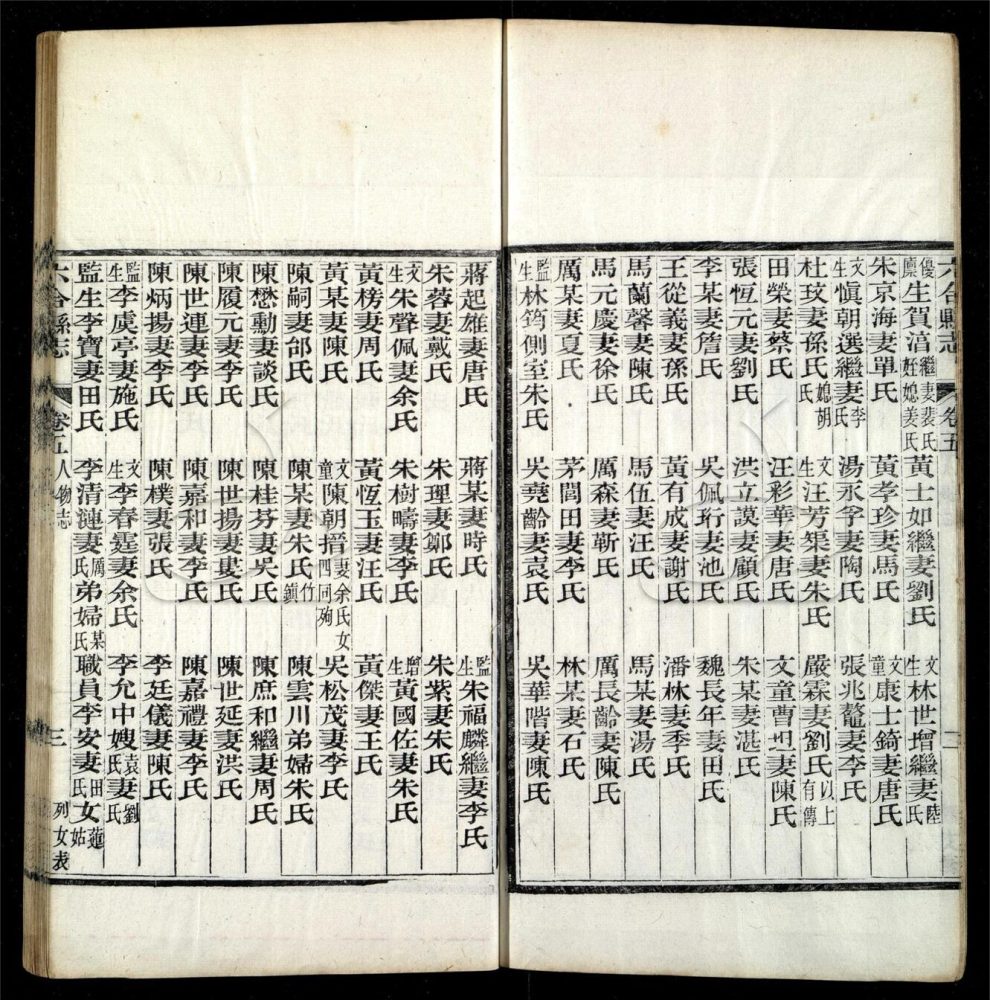 六合縣志 卷五 二
優廩生賀涪繼妻裴氏姪媳姜氏 黃士如繼妻劉氏 文生林世增繼妻陸氏
朱京海妻單氏 黃孝珍妻馬氏 文童康士錡妻唐氏
文生愼朝選繼妻李氏 湯永孚妻陶氏 張兆鼇妻李氏
杜玟妻孫氏媳胡氏 文生汪芳榘妻朱氏 嚴霖妻劉氏以上有傳
田榮妻蔡氏 汪彩華妻唐氏 文童曹坦妻陳氏
張恆元妻劉氏 洪立謨妻顧氏 朱某妻湛氏
李某妻詹氏 吳佩珩妻池氏 魏長年妻田氏
王從義妻孫氏 黃有成妻謝氏 潘林妻季氏
馬蘭馨妻陳氏 馬伍妻汪氏 馬某妻湯氏
馬元慶妻徐氏 厲森妻靳氏 厲長齡妻陳氏
厲某妻夏氏 茅閏田妻李氏 林某妻石氏
監生林筠側室朱氏 吳堯齡妻袁氏 吳華階妻陳氏
蔣起雄妻唐氏 蔣某妻時氏 監生朱福麟繼妻李氏
朱蓉妻戴氏 朱理妻鄭氏 朱紫妻朱氏
文生朱聲佩妻余氏 朱樹疇妻李氏 增生黃國佐妻朱氏
黃榜妻周氏 黃恆玉妻汪氏 黃傑妻王氏
黃某妻陳氏 文童陳朝搢妻余氏女四同殉 吳松茂妻李氏
陳嗣妻邰氏 陳某妻朱氏竹鎮 陳雲川弟婦朱氏
陳懋勳妻談氏 陳桂芬妻吳氏 陳庶和繼妻周氏
陳履元妻李氏 陳世揚妻婁氏 陳世延妻洪氏
陳世連妻李氏 陳嘉和妻李氏 陳嘉禮妻王氏
陳炳揚妻李氏 陳樸妻張氏 李廷儀妻陳氏
監生李虞亭妻施氏 文生李春霆妻余氏 李允中嫂袁氏妻劉氏
監生李寶妻田氏 李清漣妻厲氏弟婦某氏 職員李安妻田氏女蓮姑
六合縣志 卷五 人物志 三 列女表